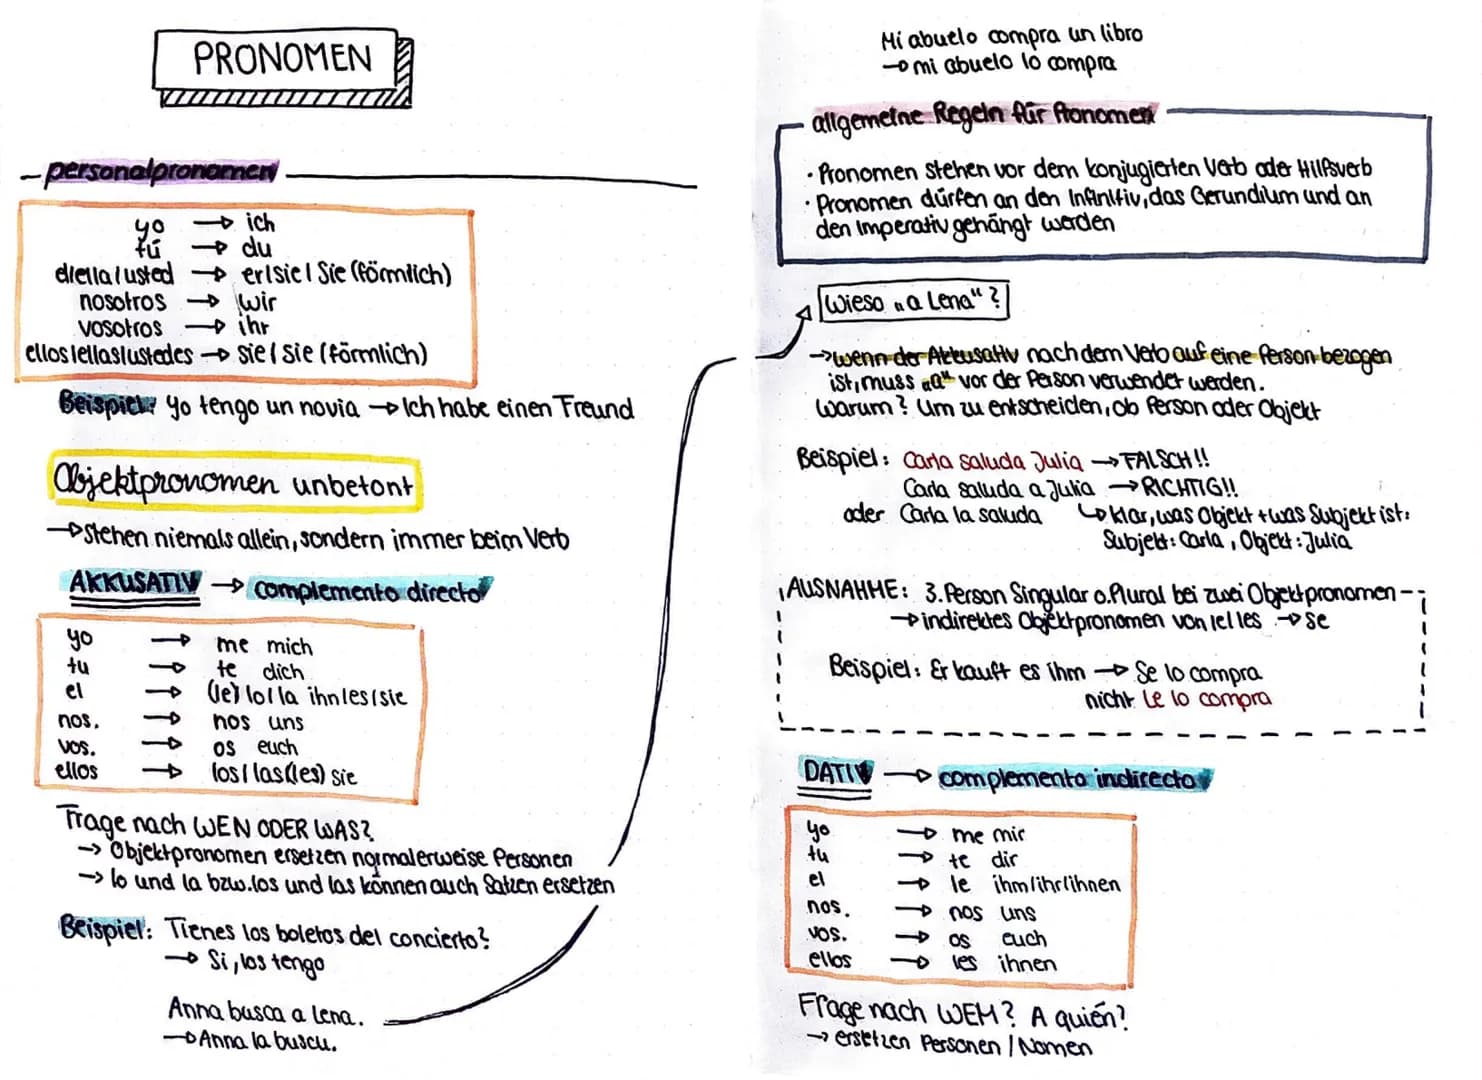 PRONOMEN
personalpronomen
yo → ich
tú → du
el/ella/usted → er/sie/Sie (förmlich)
nosotros → wir
vosotros → ihr
ellos/ellas/ustedes → sie/Sie (förmlich)
Beispiel: yo tengo un novia → Ich habe einen Freund
Objektpronomen unbetont
→ Stehen niemals allein, sondern immer beim Verb
AKKUSATIV → complemento directo
yo → me mich
tu → te dich
el → (le) lo/la ihn/es/sie
nos. → nos uns
vos. → os euch
ellos → los/las(les) sie
Frage nach WEN ODER WAS?
→ Objektpronomen ersetzen normalerweise Personen
→ lo und la bzw. los und las können auch Sachen ersetzen
Beispiel: Tienes los boletos del concierto?
→ Si, los tengo
Anna busca a Lena.
→ Anna la busca.
Mi abuelo compra un libro
→ mi abuelo lo compra
allgemeine Regeln für Pronomen
· Pronomen stehen vor dem konjugierten Verb oder Hilfsverb
· Pronomen dürfen an den Infinitiv, das Gerundium und an
den Imperativ gehängt werden
Wieso „a Lena" ?
→ wenn der Akkusativ nach dem Verb auf eine Person bezogen
ist, muss „a" vor der Person verwendet werden.
Warum? Um zu entscheiden, ob Person oder Objekt
Beispiel: Carla saluda Julia → FALSCH!!
Carla saluda a Julia → RICHTIG!!
oder Carla la saluda ↳ klar, was Objekt + was Subjekt ist:
Subjekt: Carla, Objekt: Julia
AUSNAHME: 3. Person Singular o. Plural bei zwei Objektpronomen
→ indirektes Objektpronomen von le/les → se
Beispiel: Er kauft es ihm → Se lo compra
nicht Le lo compra
DATIV → complemento indirecto
yo → me mir
tu → te dir
el → le ihm/ihr/ihnen
nos. → nos uns
vos. → os euch
ellos → les ihnen
Frage nach WEM? A quién?
→ ersetzen Personen / Nomen